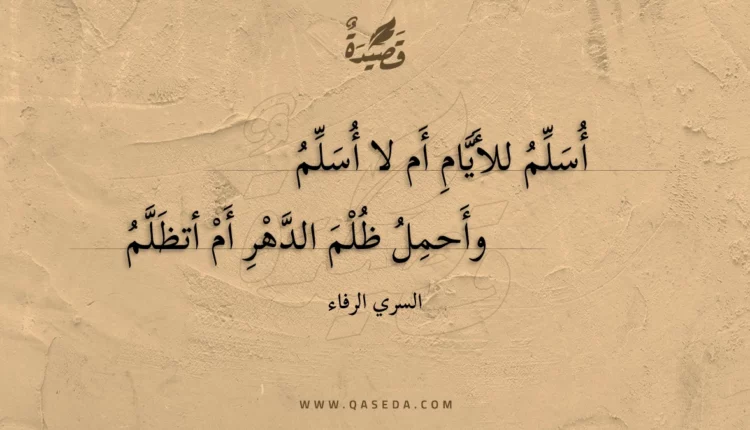 قَصِيْدَةٌ
أُسَلِّمُ للأَيَّامِ أَم لا أُسَلِّمُ
وأَحمِلُ ظُلْمَ الدَّهْرِ أَمْ أتظَلَّمُ
السري الرفاء
WWW.QASEDA.COM